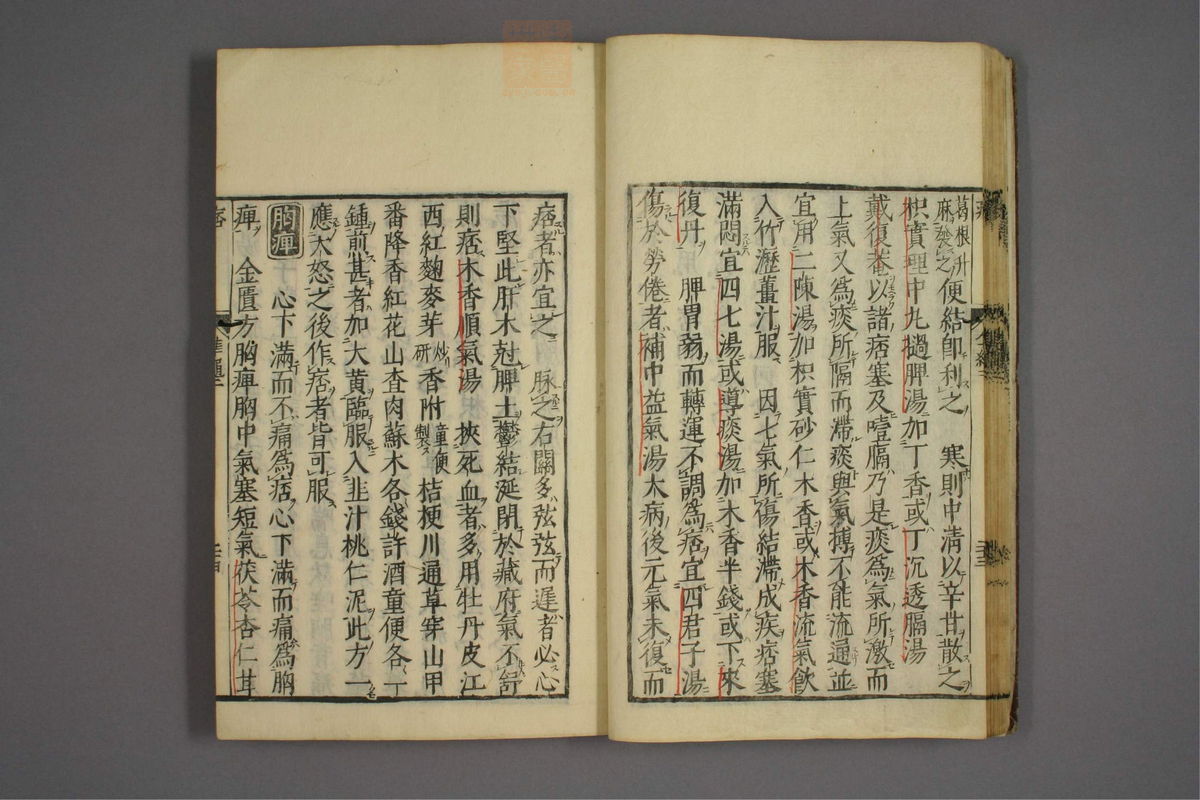 葛根升麻發之便結即利之　寒則中満以辛甘散之
枳實理中丸撾脾湯加丁香或丁沉透膈湯
戴復菴以諸痞塞及噎膈乃是痰爲氣所激而
上氣又爲痰所隔而滯痰與氣搏不能流通並
宜用二陳湯加枳實砂仁木香或木香流氣飲
入竹瀝薑汁服　因七氣所傷結滯成疾痞塞
滿悶宜四七湯或導痰湯加木香半錢或下來
復丹　脾胃弱而轉運不調爲痞宜四君子湯
傷於勞倦者補中益氣湯大病後元氣未復而
痞者亦宜之　脉之右關多弦弦而遲者必心
下堅此肝木尅脾土鬱結涎閉於藏府氣不舒
則痞木香順氣湯　挾死血者多用牡丹皮江
西紅麴麥芽炒研香附童便製桔梗川通草穿山甲
番降香紅花山査肉蘇木各錢許酒童便各一
鍾煎甚者加大黄臨服入韭汁桃仁泥此方一
應大怒之後作痞者皆可服
胸痺　心下滿而不痛爲痞心下滿而痛爲胸
痺　金匱方胸痺胸中氣塞短氣茯苓杏仁甘